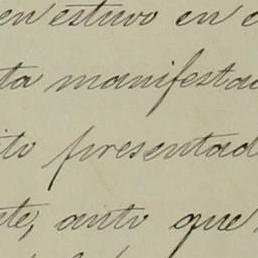 en estuvo en
ta manifestad
ito presentad
te, auto que